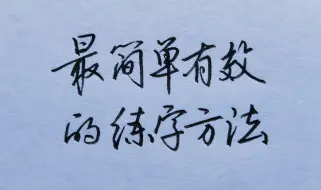 最简单有效
的练字方法